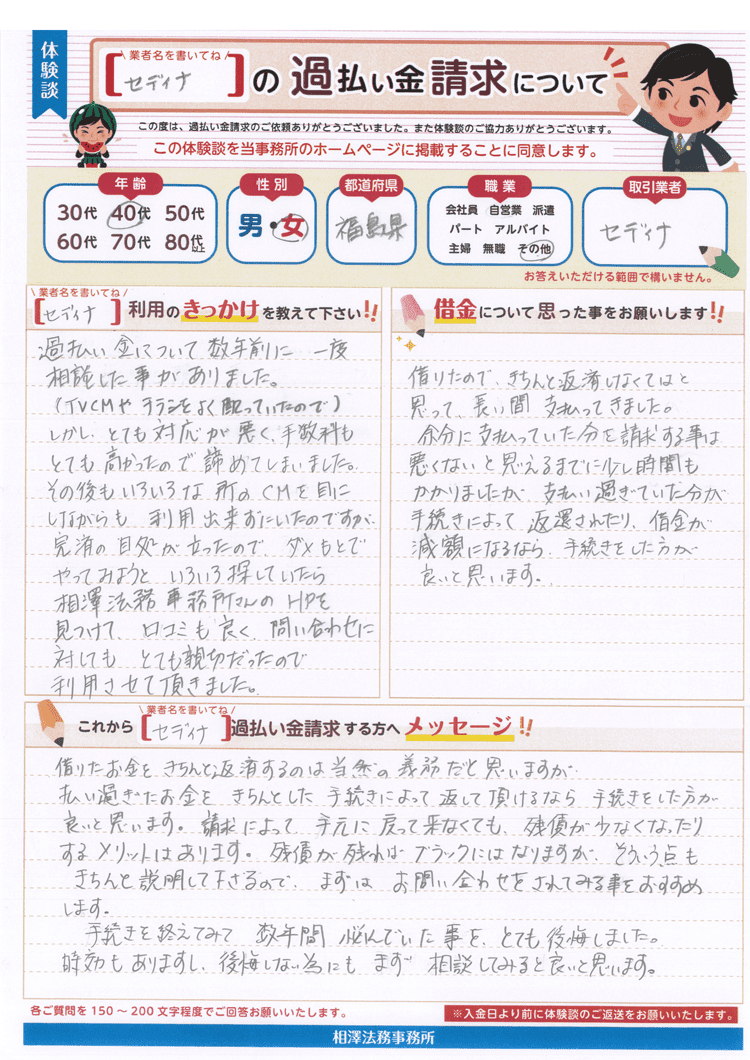 体験談
業者名を書いてね
[セディナ]の過払い金請求について
この度は、過払い金請求のご依頼ありがとうございました。また体験談のご協力ありがとうございます。
この体験談を当事務所のホームページに掲載することに同意します。
年齢
30代 40代 50代
60代 70代 80代以上
性別
男・女
都道府県
福島県
職業
会社員 自営業 派遣
パート アルバイト
主婦 無職 その他
取引業者
セディナ
お答えいただける範囲で構いません。
業者名を書いてね
[セディナ]利用のきっかけを教えて下さい!!
過払い金について数年前に 一度
相談した事がありました。
(TVCMやチラシをよく配っていたので)
しかし、とても対応が悪く、手数料も
とても高かったので諦めてしまいました。
その後もいろいろな所のCMを目に
しながらも 利用出来ずにいたのですが、
完済の目処が立ったので、ダメもとで
やってみようと いろいろ探していたら
相澤法務事務所さんのHPを
見つけて、口コミも良く、問い合わせに
対しても とても親切だったので
利用させて頂きました。
借金について思った事をお願いします!!
借りたので、きちんと返済しなくてはと
思って、長い間 支払ってきました。
余分に支払っていた分を請求する事は
悪くないと思えるまでに少し時間も
かかりましたが、支払い過ぎていた分が
手続きによって 返還されたり、借金が
減額になるなら、手続きをした方が
良いと思います。
業者名を書いてね
これから[セディナ]過払い金請求する方へメッセージ!!
借りたお金を きちんと返済するのは当然の義務だと思いますが、
払い過ぎたお金を きちんとした手続きによって返して頂けるなら 手続きをした方が
良いと思います。請求によって、手元に戻って来なくても、残債が少なくなったり
するメリットはあります。残債が残ればブラックにはなりますが、そういう点も
きちんと説明して下さるので、まずは お問い合わせをされてみる事をおすすめ
します。
手続きを終えてみて 数年間 悩んでいた事を、とても後悔しました。
時効もありますし、後悔しない為にも まず 相談してみると良いと思います。
各ご質問を150～200文字程度でご回答お願いいたします。
※入金日より前に体験談のご返送をお願いいたします。
相澤法務事務所